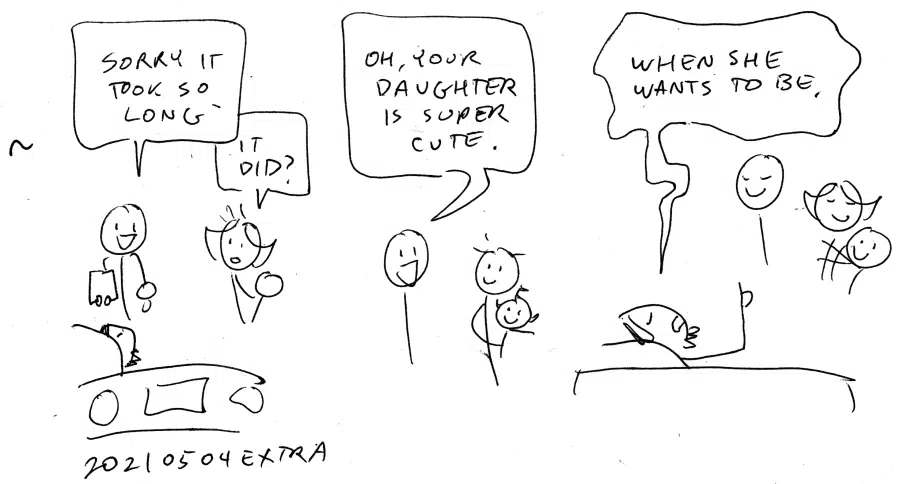 SORRY IT
TOOK SO
LONG
IT
DID?
OH, YOUR
DAUGHTER
IS SUPER
CUTE.
WHEN SHE
WANTS TO BE.
20210504EXTRA